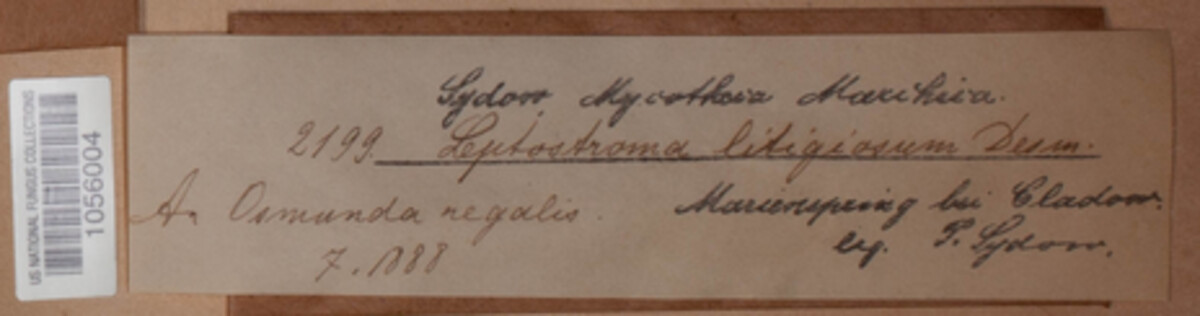 US NATIONAL FUNGUS COLLECTIONS
1056004
Sydow Mycotheca Marchica.
2199. Leptostroma litigiosum Desm.
An Osmunda regalis. Marienspring bei Cladow.
7. 1888 leg. P. Sydow.